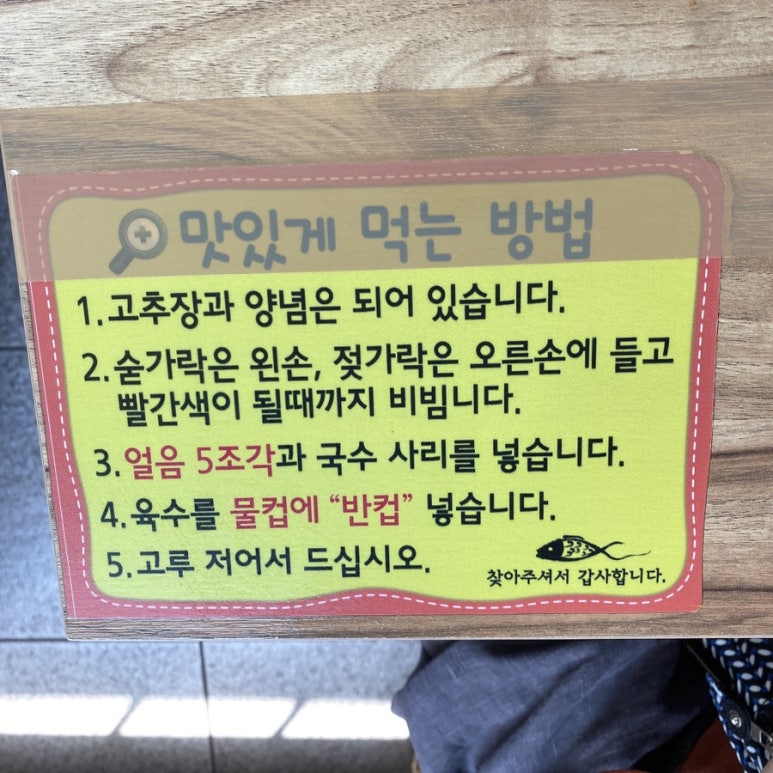 맛있게 먹는 방법
1. 고추장과 양념은 되어 있습니다.
2. 숟가락은 왼손, 젖가락은 오른손에 들고
빨간색이 될때까지 비빔니다.
3. 얼음 5조각과 국수 사리를 넣습니다.
4. 육수를 물컵에 “반컵” 넣습니다.
5. 고루 저어서 드십시오.
찾아주셔서 갑사합니다.